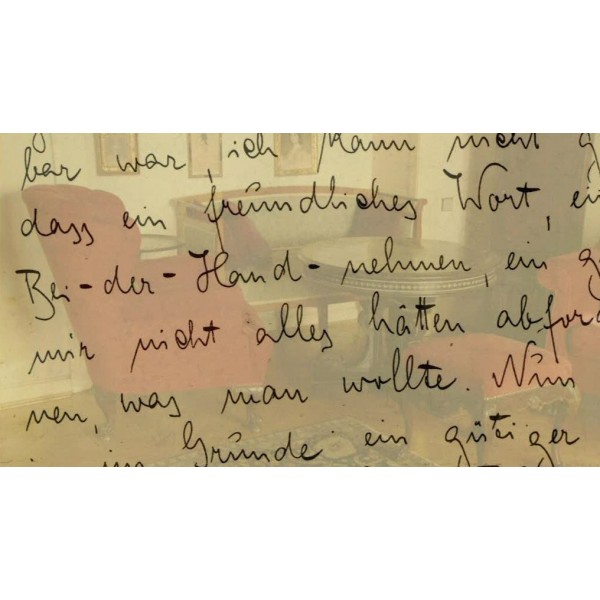 bar war, ich kann nicht g
dass ein freundliches Wort, ein
Bei-der-Hand-nehmen, ein g
mir nicht alles hätten abfor
nen, was man wollte. Nun
im Grunde ein gütiger